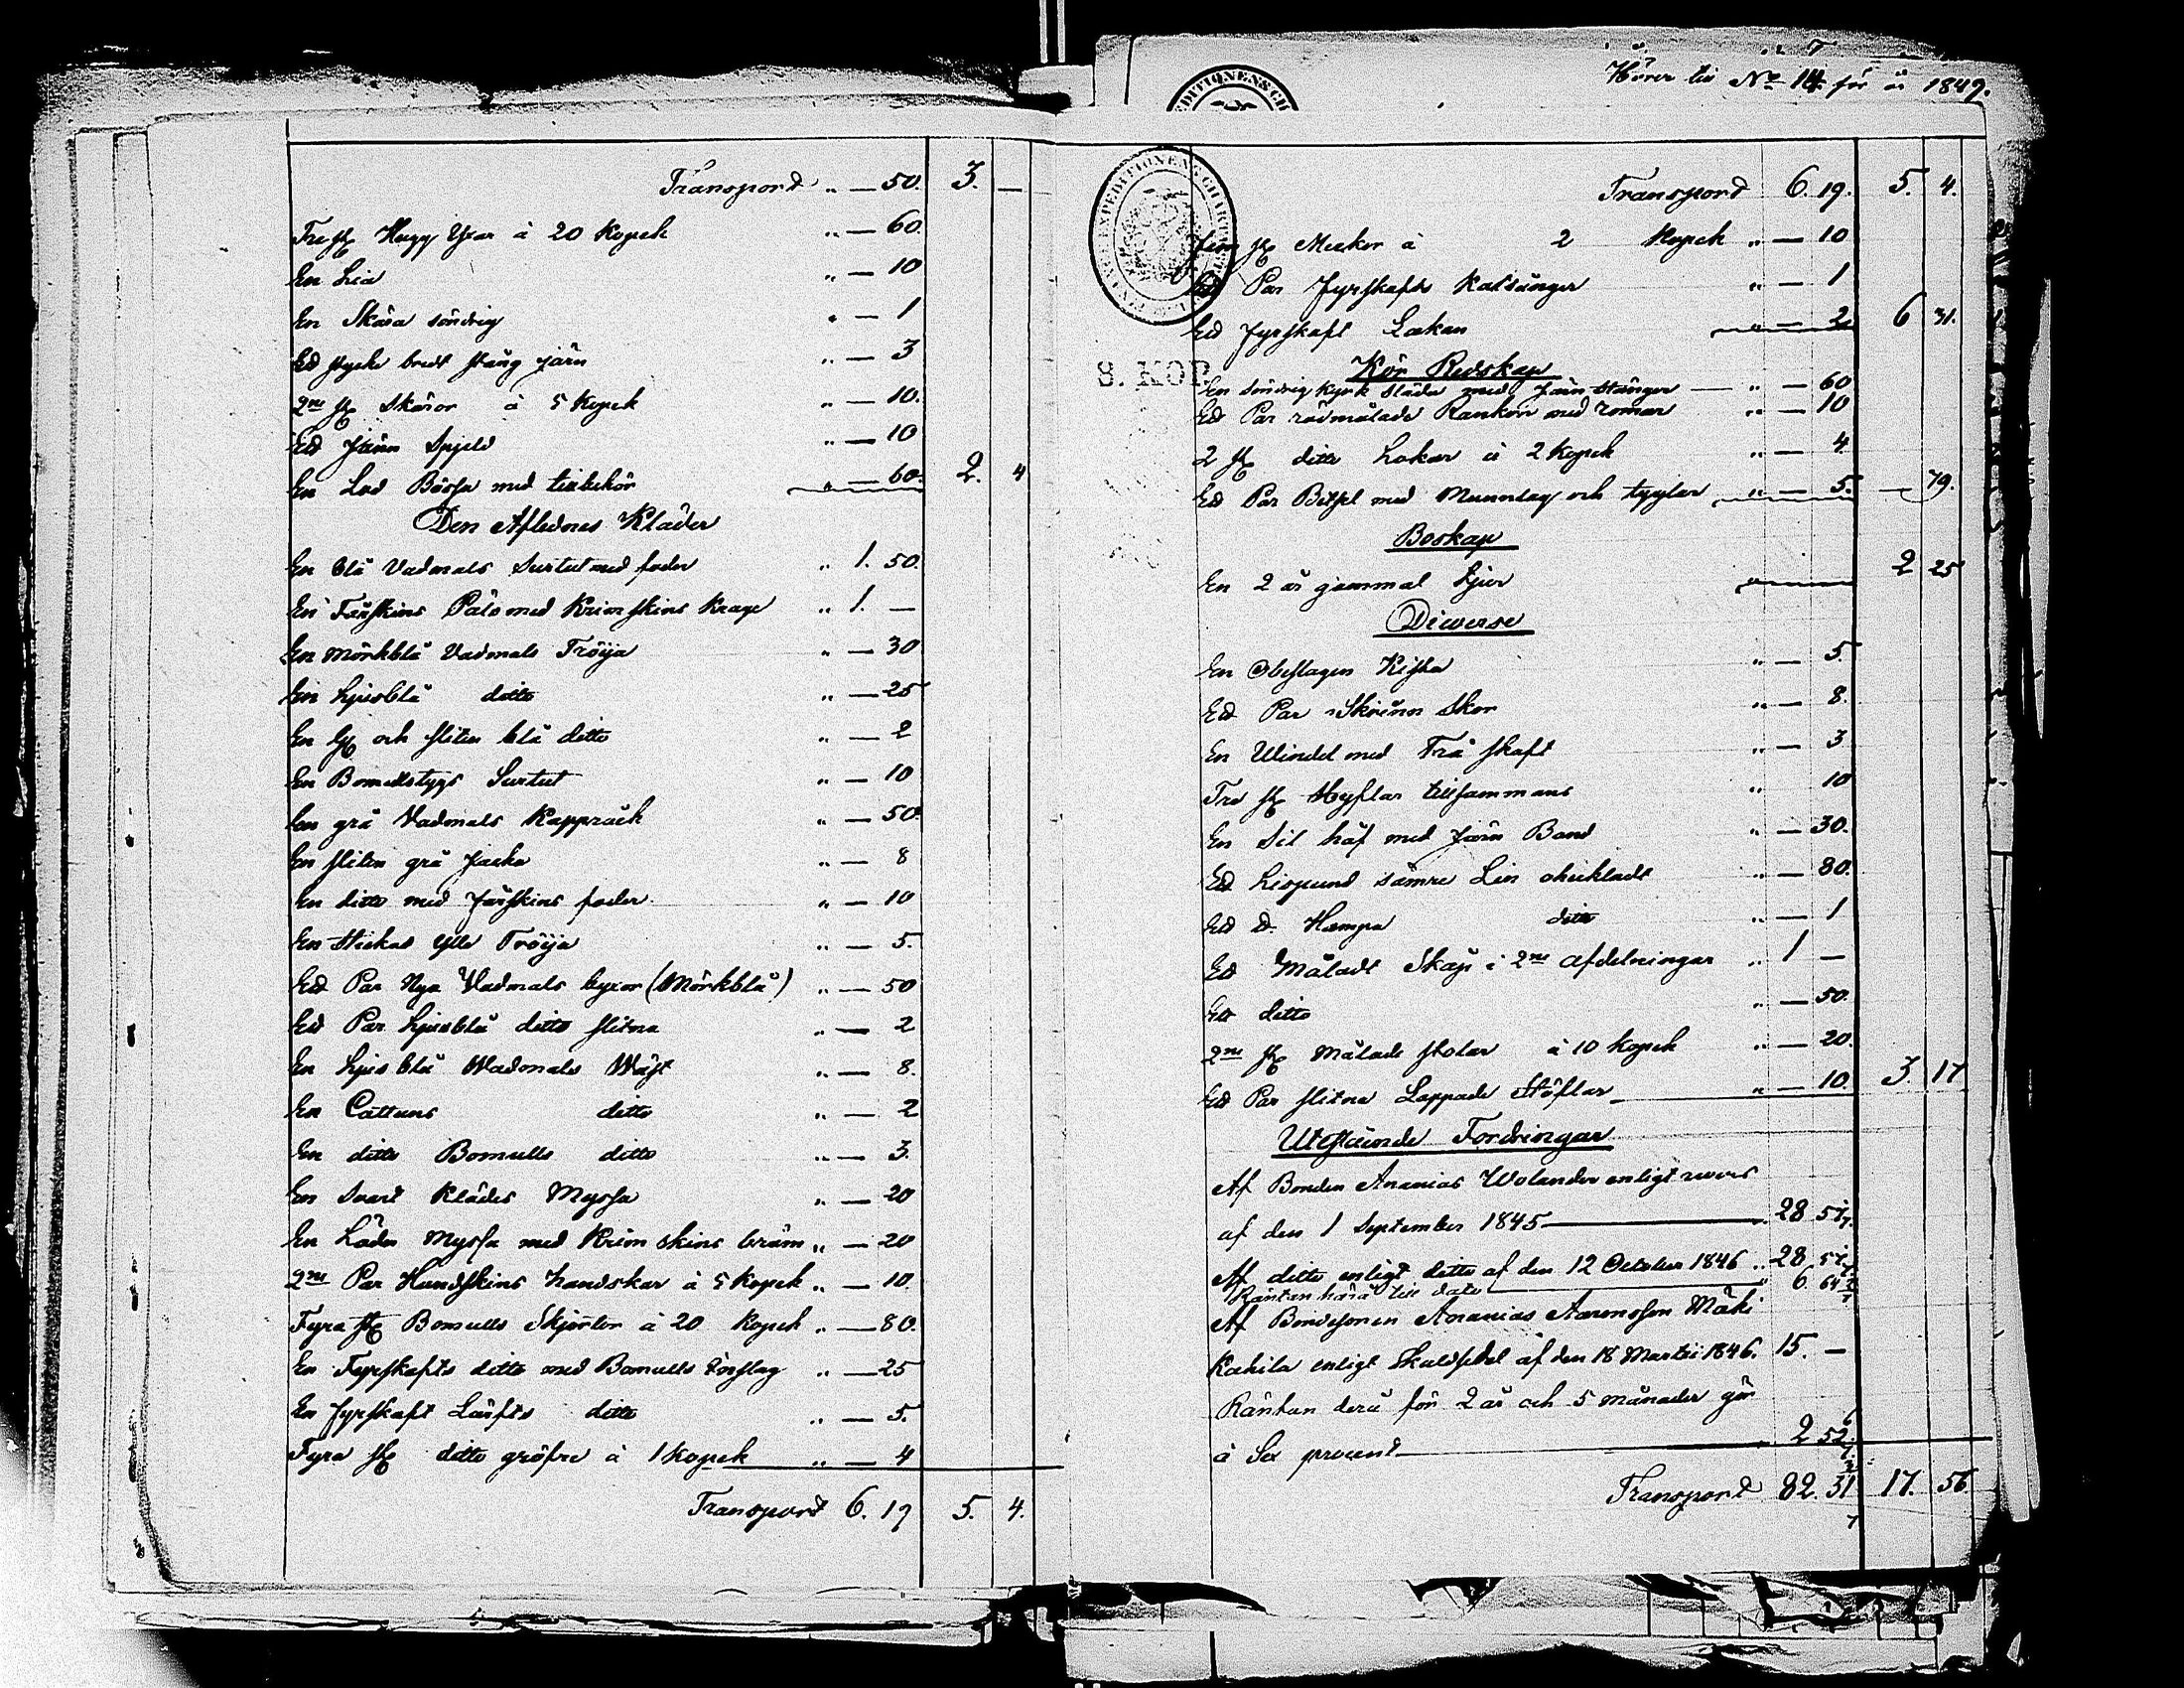 Transport " — 50. 3. —
Tre st Hugg Yxar à 20 Kopek " — 60
En Lia " — 10
En Skära söndrig " — 1
Ett stycke bredt stång järn " — 3
2ne st Skäror à 5 Kopek " — 10.
Ett Järn Spjeld " — 10
En Lod Bössa med tillbehör " — 60. 2. 4
Den Aflednes Kläder
En blå Vadmals Surtut med foder " 1. 50.
En Fårskins Päls med Krimskins Krage " 1. —
En Mörkblå Vadmals Tröija " — 30
En Ljusblå ditto " — 25
En och sliten blå ditto " — 2
En Bomullstygs Surtut " — 10
En grå Vadmals Kappråck " — 50.
En sliten grå Jacka " — 8
En ditto med fårskins foder " — 10
En Stickad ylle Tröija " — 5.
Ett Par Nya Vadmals byxor (Mörkblå) " — 50
Ett Par Ljusblå ditto slitna " — 2
En Ljusblå Wadmals Wäst " — 8.
En Cattuns ditto " — 2
En ditto Bomulls ditto " — 3.
En Svart Klädes Myssa " — 20
En Läder Myssa med Krimskins bräm " — 20
2ne Par Hundskins handskar à 5 Kopek " — 10
Fyra st Bomulls Skjortor à 20 Kopek " — 80.
En Fyrskafts ditto med Bomulls " — 25
En fyrskaft Lärfts ditto " — 5.
Fyra st ditto gröfre à 1 Kopek " — 4
Transport 6. 19 5. 4.
Hörer till No 14 för år 1849.
Transport 6. 19. 5. 4.
Fem st à 2 Kopek " — 10
Ett Par fyrskafts Kalsånger " — 1
Ett fyrskaft Lakan " — 2 6 31.
8. KOP.
Kör Redskap
En söndrig Kyrk Släda med Järn Stänger — " — 60
Ett Par rödmålade med " — 10
2 st ditto Lokar à 2 Kopek " — 4
Ett Par Betsel med Munnlag och tyglar " — 5. — 79.
Boskap
En 2 år gammal tjur " 2 25
Diverse
En Obeslagen Kista " — 5.
Ett Par Skor " — 8.
En med Trä skaft " — 3
Tre st Hyflar tillsammans " 10
En Sil håf med Järn Band " — 30.
Ett Lispund sämre Lin ohäckladt " — 80.
Ett D. Hampa ditto " — 1
Ett Måladt Skåp i 2ne afdelningar " 1 —
Ett ditto " — 50.
2ne st Målade stolar à 10 Kopek " — 20.
Ett Par slitna Lappade Stöflar " — 10. 3. 17
Utestående Fordringar
Af Bonden Ananias Wolander enligt revers
af den 1 September 1845 — 28 57
Af ditto enligt ditto af den 12 October 1846 " 28 57
Räntan härå till dato " 6 64
Af Bondesonen Ananias Aaronsson Mäki
Rahila enligt Skuldsedel af den 18 Martii 1846. 15. —
Räntan derå för 2 år och 5 månader gör
à Sex procent — 2 52
Transport 82. 31 17. 56